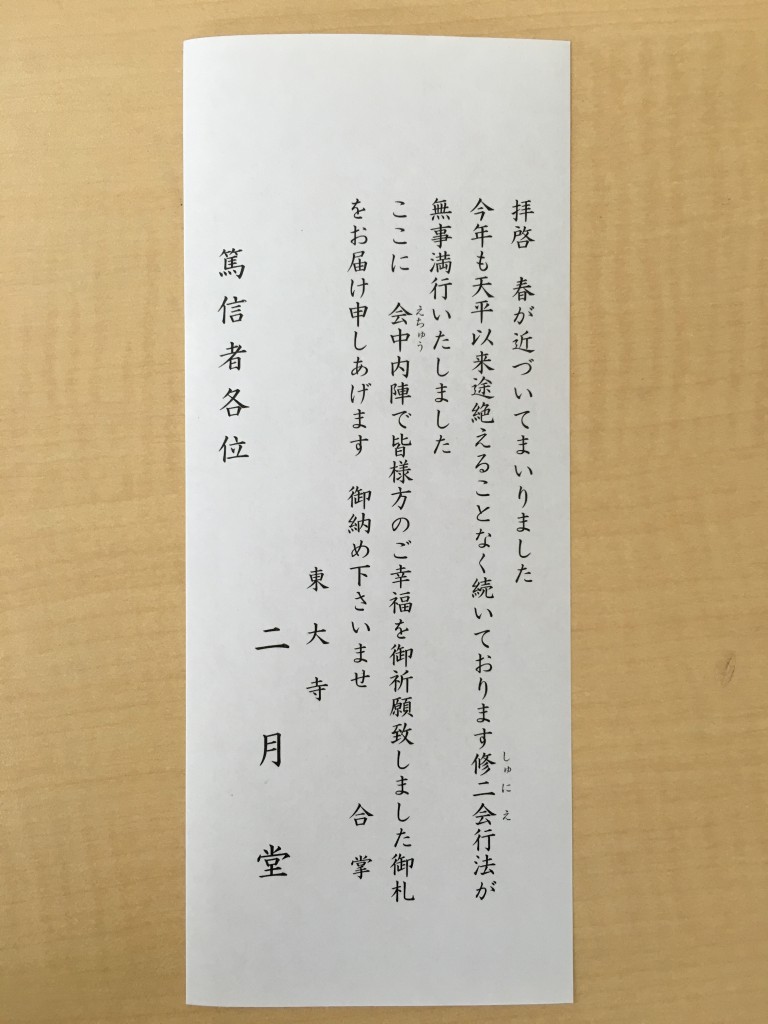 拝啓　春が近づいてまいりました
今年も天平以来途絶えることなく続いております修二会行法が
しゅにえ
無事満行いたしました
ここに　会中内陣で皆様方のご幸福を御祈願致しました御札
えちゅう
をお届け申しあげます　御納め下さいませ　合掌
東大寺
二月堂
篤信者各位